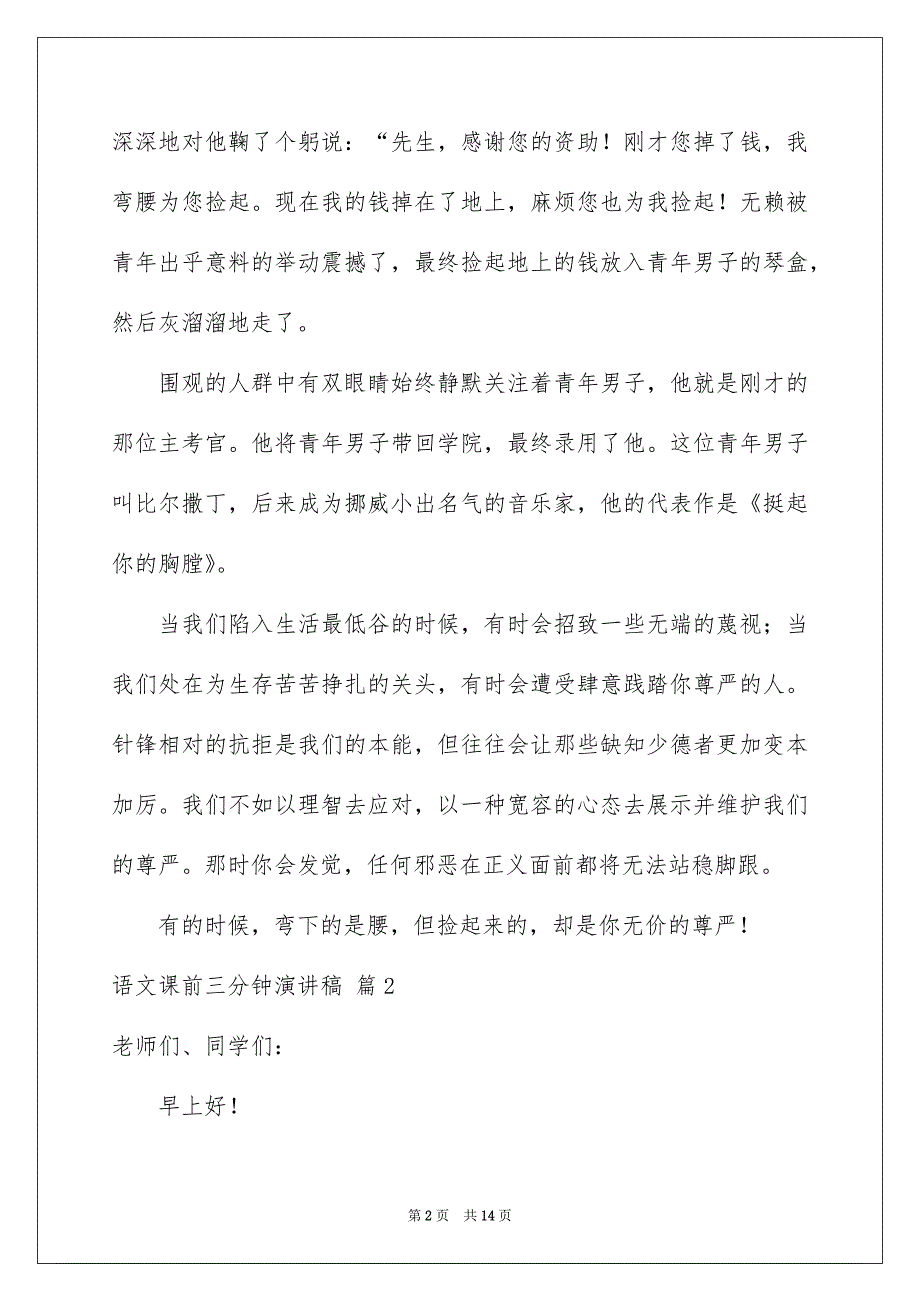 深深地对他鞠了个躬说：“先生，感谢您的资助！刚才您掉了钱，我
弯腰为您捡起。现在我的钱掉在了地上，麻烦您也为我捡起！无赖被
青年出乎意料的举动震撼了，最终捡起地上的钱放入青年男子的琴盒，
然后灰溜溜地走了。
围观的人群中有双眼睛始终静默关注着青年男子，他就是刚才的
那位主考官。他将青年男子带回学院，最终录用了他。这位青年男子
叫比尔撒丁，后来成为挪威小出名气的音乐家，他的代表作是《挺起
你的胸膛》。
当我们陷入生活最低谷的时候，有时会招致一些无端的蔑视；当
我们处在为生存苦苦挣扎的关头，有时会遭受肆意践踏你尊严的人。
针锋相对的抗拒是我们的本能，但往往会让那些缺知少德者更加变本
加厉。我们不如以理智去应对，以一种宽容的心态去展示并维护我们
的尊严。那时你会发觉，任何邪恶在正义面前都将无法站稳脚跟。
有的时候，弯下的是腰，但捡起来的，却是你无价的尊严！
语文课前三分钟演讲稿 篇2
老师们、同学们：
早上好！
第 2 页 共 14 页